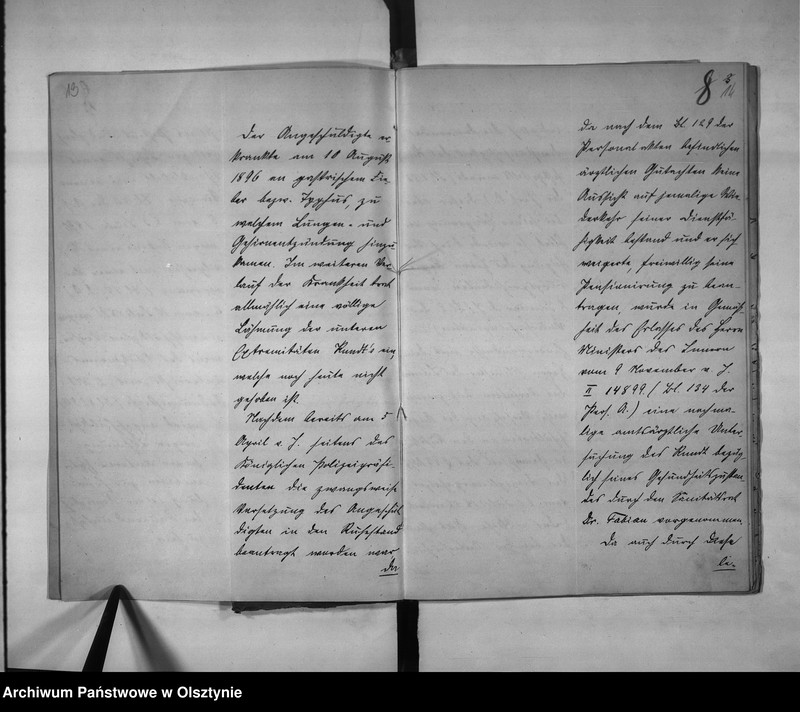 Der Angeschuldigte er
krankte am 10 August
1896 an gastrischem Fie-
ber bezw. Typhus, zu
welchem Lungen- und
Gehirnentzündung hinzu
kamen. Im weiteren Ver
lauf der Krankheit trat
allmählich eine völlige
Lähmung der unteren
Extremitäten Kundt's ein,
welche noch heute nicht
gehoben ist.
Nachdem bereits am 5
April v. J. seitens des
Königlichen Polizeipräsi-
denten die zwangsweise
Versetzung des Angeschul
digten in den Ruhestand
beantragt worden war
da
8
da nach dem Bl. 129 der
Personalakten befindlichen
ärztlichen Gutachten keine
Aussicht auf jemalige Wie
derkehr seiner Dienstfä-
higkeit bestand und er sich
weigerte, freiwillig seine
Pensionirung zu bean-
tragen, wurde in Gemäß
heit des Erlasses des Herrn
Ministers des Innern
vom 9 November v. J.
II 14899. (Bl. 134 der
Pers. A.) eine nochma-
lige amtsärztliche Unter
suchung des Kundt bezüg
lich seines Gesundheitszustan
des durch den Sanitätsrat
Dr. Fabian vorgenommen.
Da auch durch diese
Archiwum Państwowe w Olsztynie